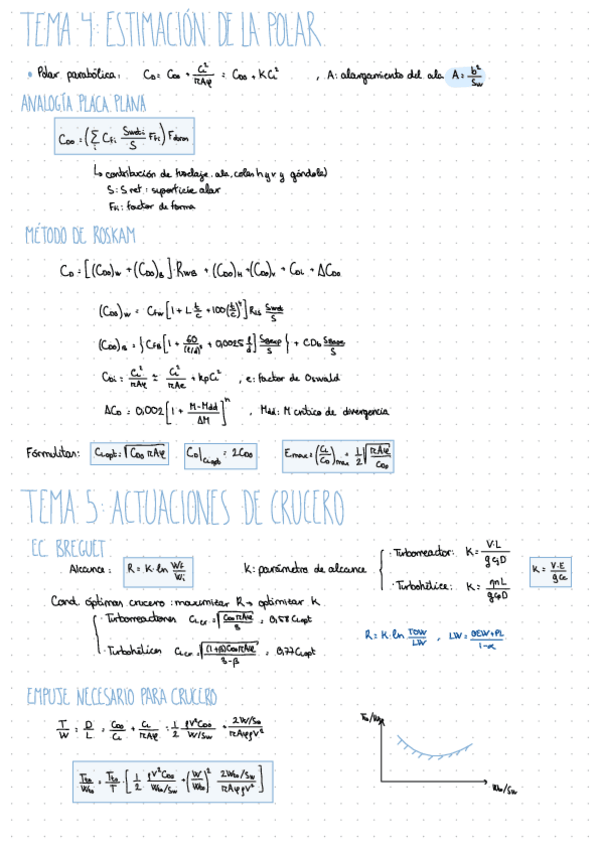 TEMA 4: ESTIMACIÓN DE LA POLAR
• Polar parabólica: C_D = C_D0 + C_L²/πAφ = C_D0 + KC_L² , A: alargamiento del ala A = b²/S_w
ANALOGÍA PLACA PLANA
C_D0 = (∑_i C_fi S_weti/S F_fi) F
↳ contribución de fuselaje, ala, colas h y v y góndola)
S: S ref: superficie alar
F_fi: factor de forma
MÉTODO DE ROSKAM
C_D = [(C_D0)_W + (C_D0)_B]·R_WB + (C_D0)_H + (C_D0)_V + C_Di + ΔC_D0
(C_D0)_W = C_fW [1 + L t/c + 100(t/c)⁴] R_LS S_wet/S
(C_D0)_B = {C_fB [1 + 60/(l/d)³ + 0,0025 l/d] S/S} + CD_b S/S
C_Di = C_L²/πAφ ≈ C_L²/πAe + k_pC_L² , e: factor de Oswald
ΔC_D = 0,002 [1 + M-Mdd/ΔM]ⁿ , Mdd: M crítico de divergencia
Fórmulitas: C_Lopt = √C_D0πAφ C_D|_CLopt = 2C_D0 E_max = (C_L/C_D)_max = 1/2 √πAφ/C_D0
TEMA 5: ACTUACIONES DE CRUCERO
EC. BREGUET:
Alcance: R = K·ln W_i/W_i K: parámetro de alcance
· Turborreactor: K = V·L/g c_j D
· Turbohélice: K = ηL/g c_p D
K = V·E/g c
Cond. óptimas crucero: maximizar R → optimizar K
· Turborreactores C_Lcr = √C_D0πAφ/3 = 0,58 C_Lopt
· Turbohélices C_Lcr = √(1+β)C_D0πAφ/3-β = 0,77 C_Lopt
R = K·ln TOW/LW , LW = OEW+PL/1-α
EMPUJE NECESARIO PARA CRUCERO
T/W = D/L = C_D0/C_L + C_L/πAφ = 1/2 ρV²C_D0/W/S_w + 2W/S_w/πAφρV²
T_to/W_to
T_to/W_to = T_to/T · [1/2 ρV²C_D0/W_to/S_w + (W/W_to)² 2W_to/S_w/πAφρV²]
W_to/S_w